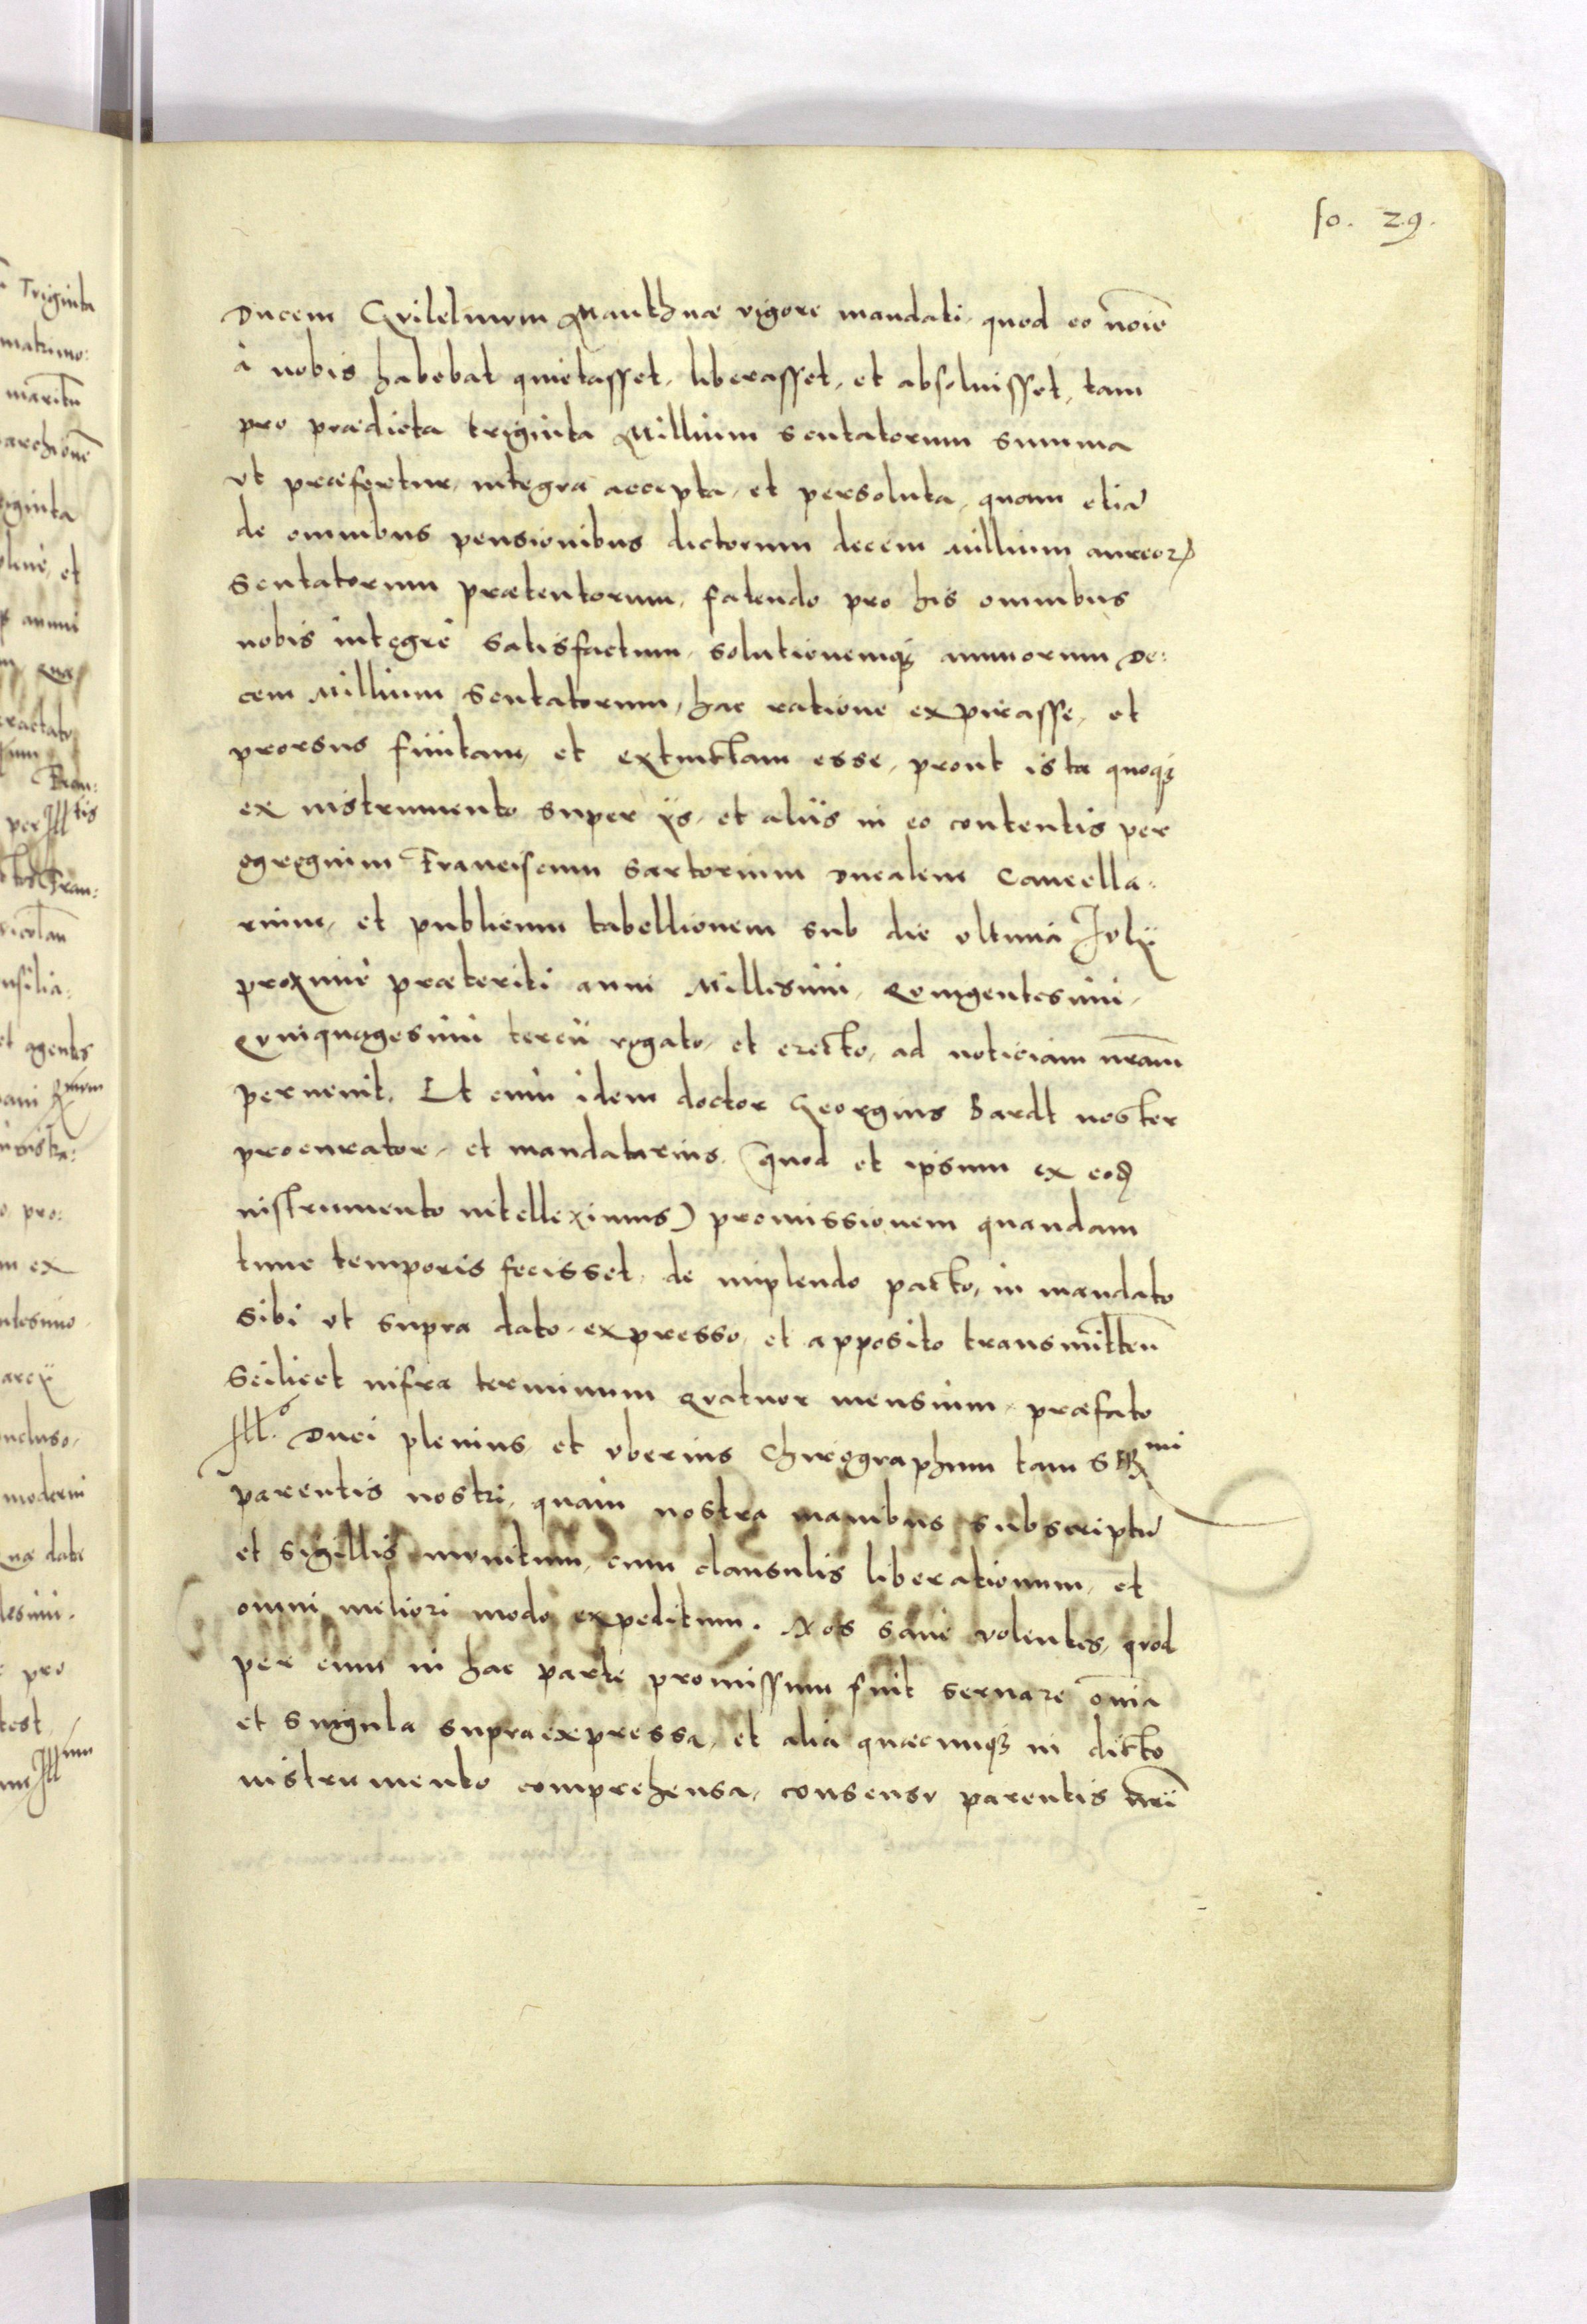 fo. 29.
Ducem Gvilelmvm Manthuæ vigore mandati, quod eo noīe
à nobis habebat quietasset, liberasset, et absoluisset, tam
pro prædicta triginta Millium scutatorum summa
vt præfertur, integra accepta, et persoluta, quam etiā
de omnibus pensionibus dictorum decem millium aureor
scutatorum prætentorum, fatendo pro his omnibus
nobis integrè satisfactum, solutionemq; annuorum De:
cem Millium scutatorum, hac ratione expirasse, et
prorsus finitam, et extinctam esse, prout ista quoq;
ex instrumento super ijs, et alijs in eo contentis per
egregium Franciscum Sartorium Ducalem Cancella:
rium, et publicum tabellionem sub die vltima Jvlij
proximè præteriti anni Millesimi, Qvingentesimi,
Qvinquagesimi tercij rogato, et erecto, ad noticiam nr̄am
peruenit. Et cum idem doctor Georgius Bardt noster
procurator, et mandatarius (quod et ipsum ex eod
instrumento intelleximus) promissionem quandam
tunc temporis fecisset, de implendo pacto, in mandato
sibi vt supra dato, expresso, et apposito transmitten̄
scilicet infra terminum Qvatuor mensium, præfato
Ill.º Duci plenius, et vberius Chirographum tam Serᵐⁱ
parentis nostri, quàm nostra manibus subscriptū
et sigillis mvnitum, cum clausulis liberationum, et
omni meliori modo expeditum. Nos sanè volentes, quod
per eum in hac parte promissum fuit seruare om̄ia
et singula supraexpressa, et alia quæcunq; in dicto
instrumento comprehensa, consensv parentis nr̄i